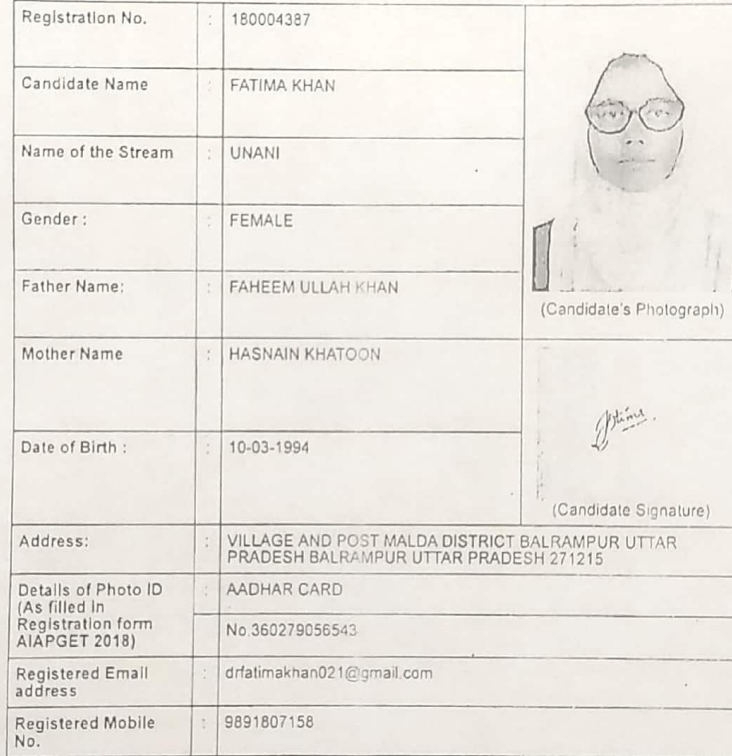 Registration No. : 180004387
Candidate Name : FATIMA KHAN
Name of the Stream : UNANI
Gender : : FEMALE
Father Name: : FAHEEM ULLAH KHAN
(Candidate's Photograph)
Mother Name : HASNAIN KHATOON
Fatima
Date of Birth : : 10-03-1994
(Candidate Signature)
Address: : VILLAGE AND POST MALDA DISTRICT BALRAMPUR UTTAR
PRADESH BALRAMPUR UTTAR PRADESH 271215
Details of Photo ID : AADHAR CARD
(As filled in
Registration form
AIAPGET 2018)
No.360279056543
Registered Email : drfatimakhan021@gmail.com
address
Registered Mobile : 9891807158
No.